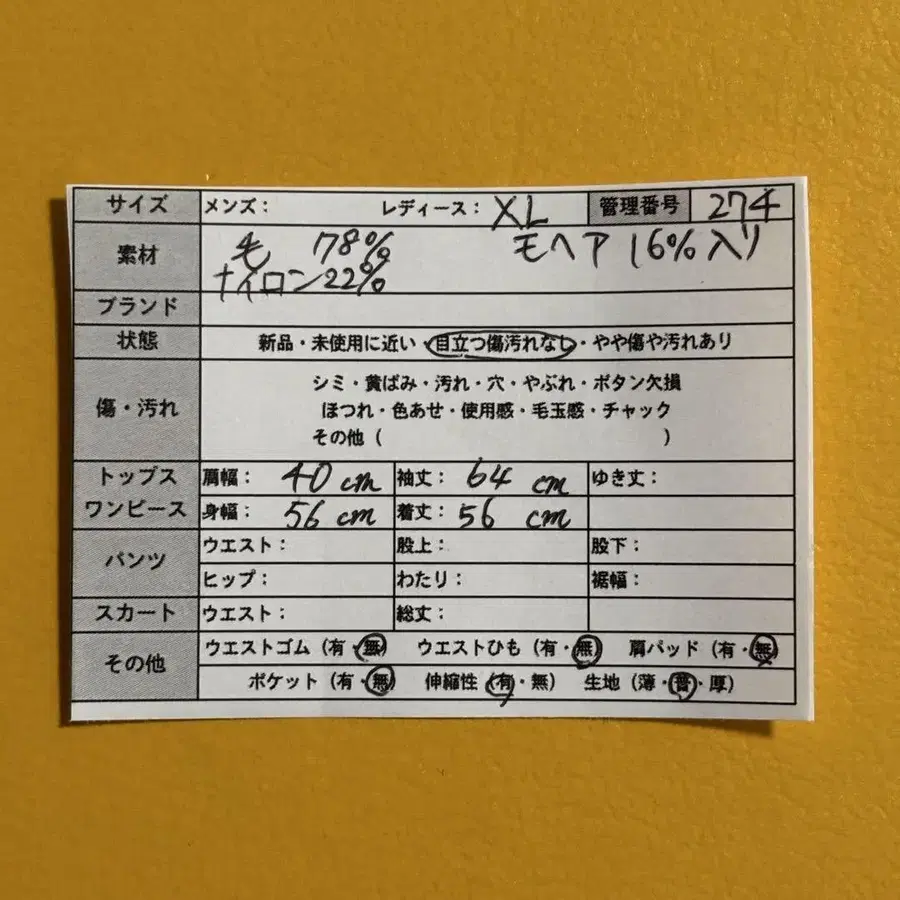 サイズ メンズ: レディース: XL 管理番号 274
素材 毛 78% モヘア 16%入り
ナイロン22%
ブランド
状態 新品・未使用に近い・目立つ傷汚れなし・やや傷や汚れあり
傷・汚れ シミ・黄ばみ・汚れ・穴・やぶれ・ボタン欠損
ほつれ・色あせ・使用感・毛玉感・チャック
その他( )
トップス 肩幅: 40 cm 袖丈: 64 cm ゆき丈:
ワンピース 身幅: 56 cm 着丈: 56 cm
パンツ ウエスト: 股上: 股下:
ヒップ: わたり: 裾幅:
スカート ウエスト: 総丈:
その他 ウエストゴム(有・無) ウエストひも(有・無) 肩パッド(有・無)
ポケット(有・無) 伸縮性(有・無) 生地(薄・普・厚)